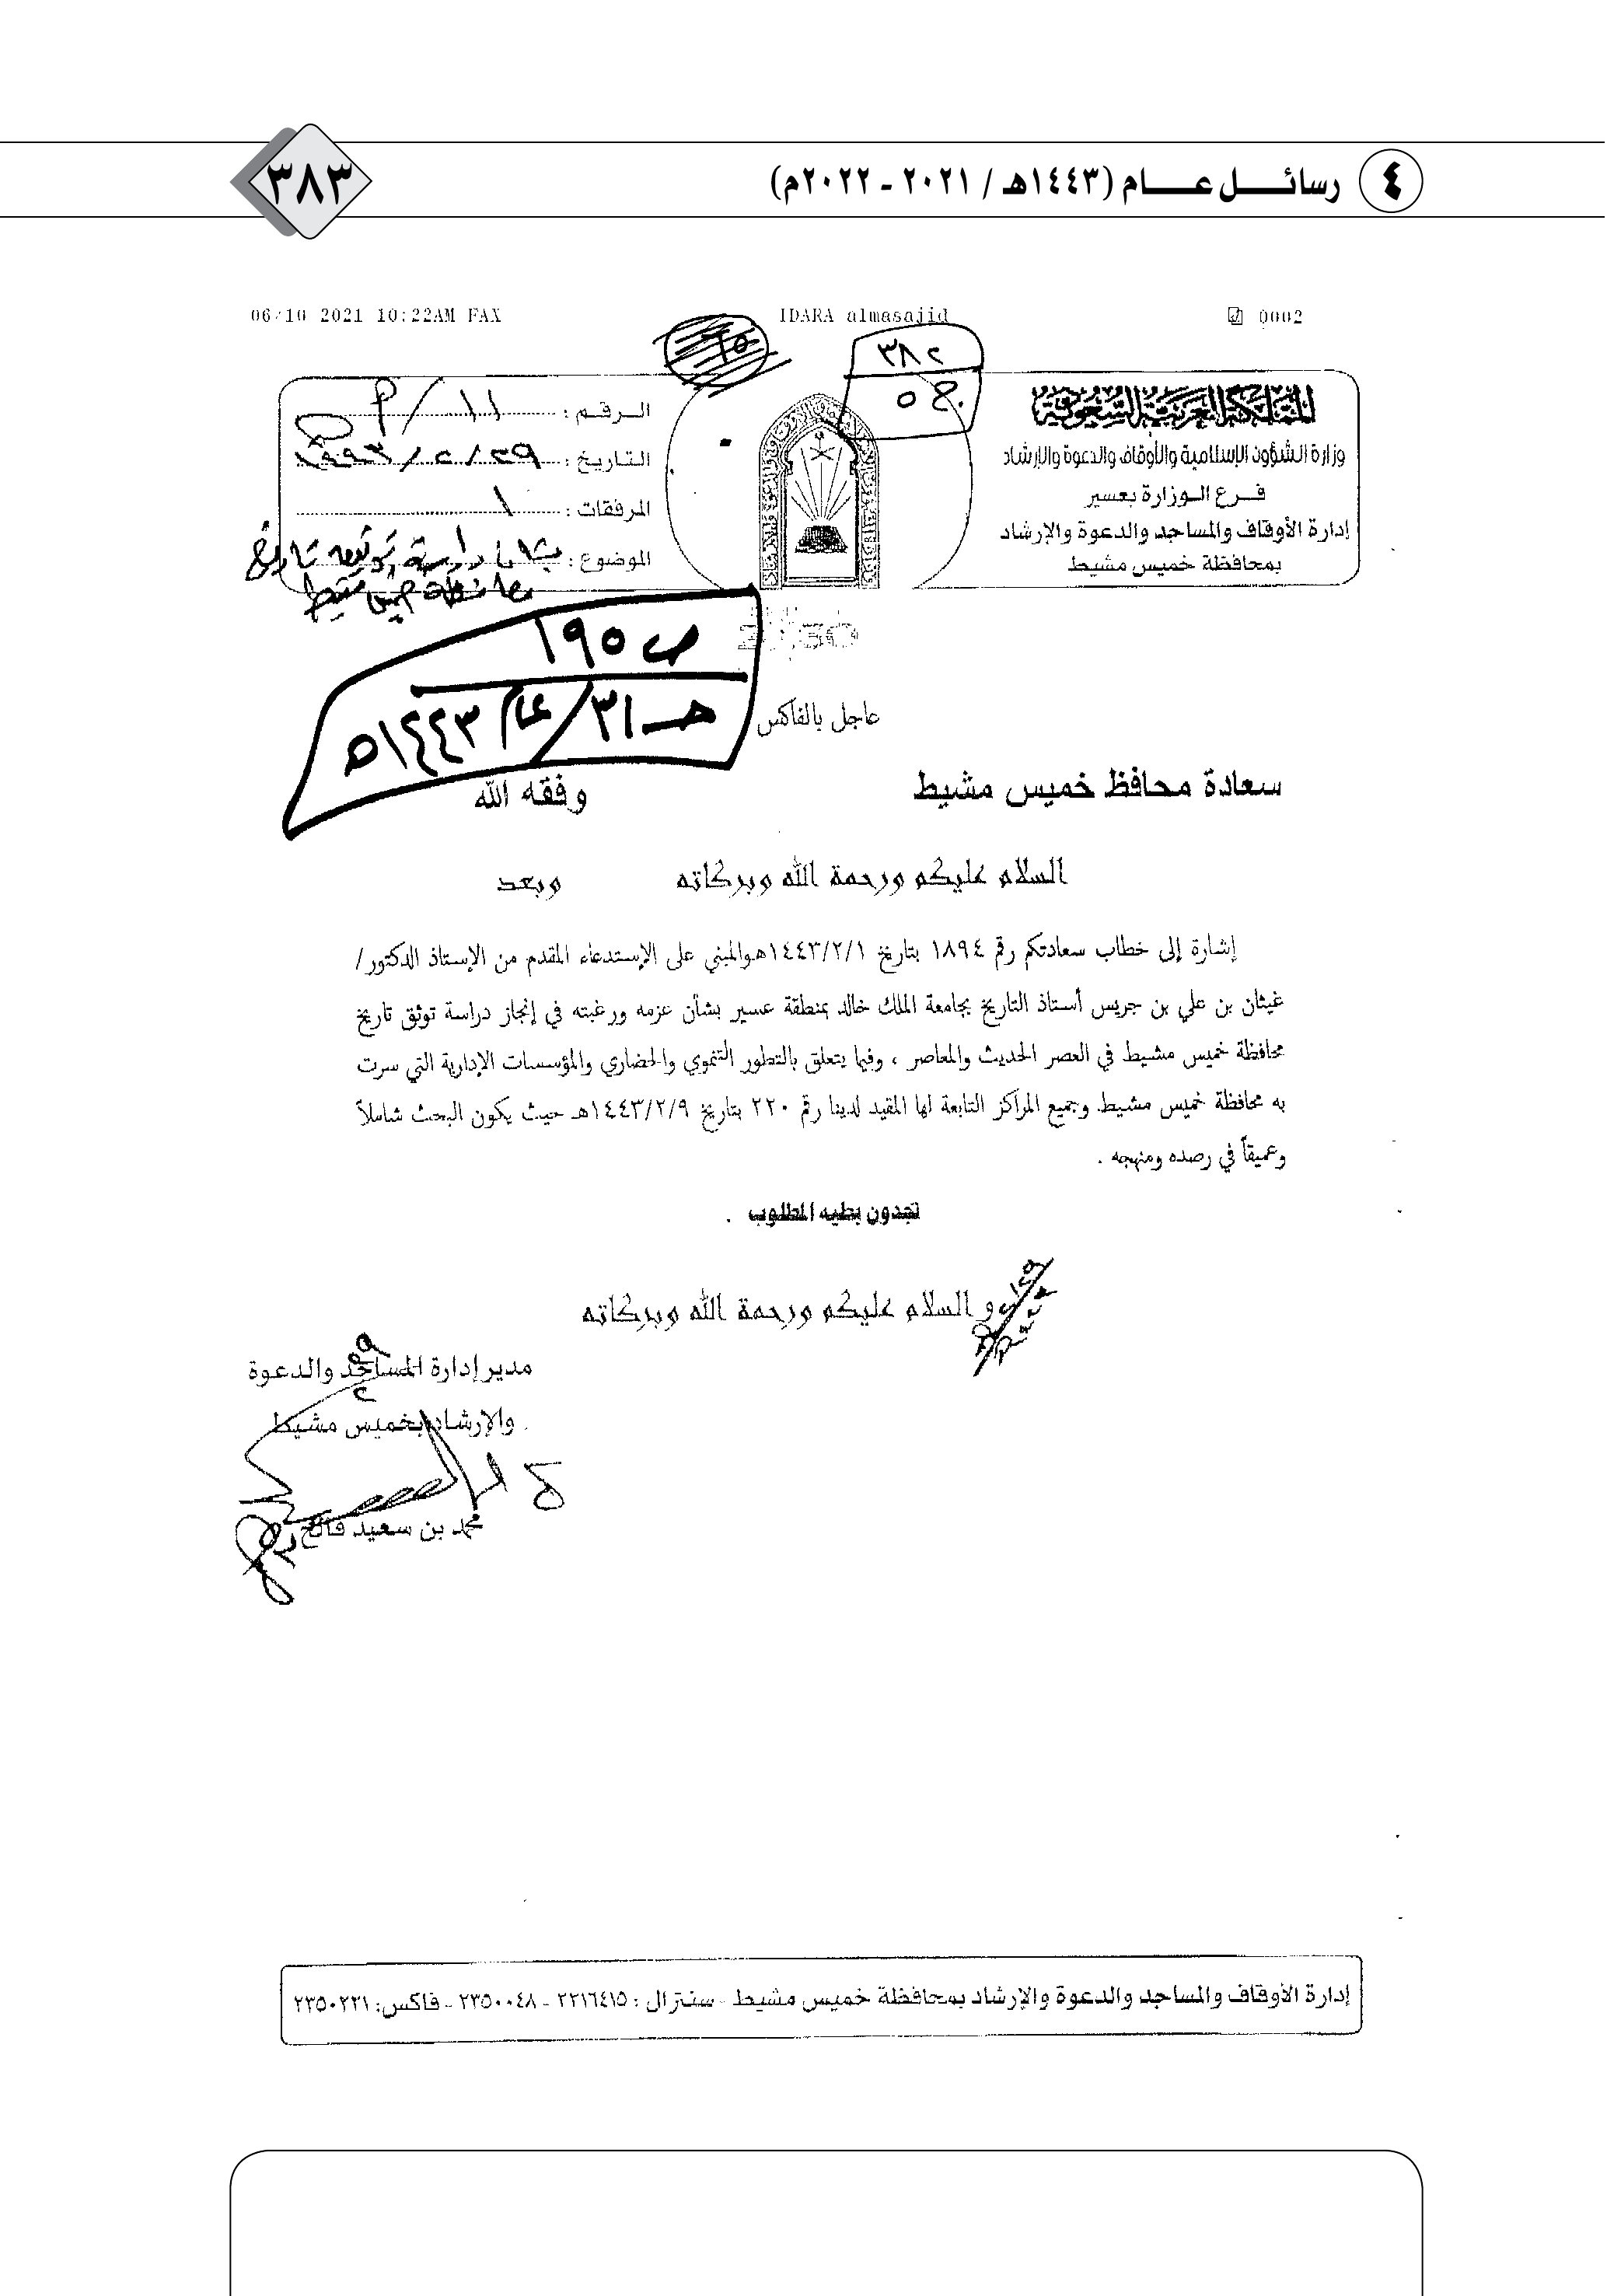 ٤ رسائل عام (١٤٤٣هـ / ٢٠٢١ - ٢٠٢٢م) ٣٨٣
06/10 2021 10:22AM FAX IDARA almasajid 0002
٣٨٢
ج ٥
المملكة العربية السعودية
وزارة الشؤون الإسلامية والأوقاف والدعوة والإرشاد
فرع الوزارة بعسير
إدارة الأوقاف والمساجد والدعوة والإرشاد
بمحافظة خميس مشيط
الرقم : ١١ /
التاريخ : ٢٩ / ٢ / ١٤٤٣
المرفقات : ١
الموضوع : بشأن دراسة توثيق تاريخ
محافظة خميس مشيط
ص ١٩٥
هـ ٣١ / عام ١٤٤٣هـ
عاجل بالفاكس
سعادة محافظ خميس مشيط وفقه الله
السلام عليكم ورحمة الله وبركاته وبعد
إشارة إلى خطاب سعادتكم رقم ١٨٩٤ بتاريخ ١٤٤٣/٢/١هـ والمبني على الإستدعاء المقدم من الإستاذ الدكتور /
غيثان بن علي بن جريس أستاذ التاريخ بجامعة الملك خالد بمنطقة عسير بشأن عزمه ورغبته في إنجاز دراسة توثق تاريخ
محافظة خميس مشيط في العصر الحديث والمعاصر ، وفيما يتعلق بالتطور التنموي والحضاري والمؤسسات الإدارية التي سرت
به محافظة خميس مشيط وجميع المراكز التابعة لها المقيد لدينا رقم ٢٢٠ بتاريخ ١٤٤٣/٢/٩هـ حيث يكون البحث شاملاً
وعميقاً في رصده ومنهجه .
تجدون بطيه المطلوب .
و السلام عليكم ورحمة الله وبركاته
مدير إدارة المساجد والدعوة
والإرشاد بخميس مشيط
محمد بن سعيد فالح
إدارة الأوقاف والمساجد والدعوة والإرشاد بمحافظة خميس مشيط - سنترال : ٢٢١٦٤١٥ - ٢٣٥٠٠٤٨ - فاكس: ٢٣٥٠٢٢١